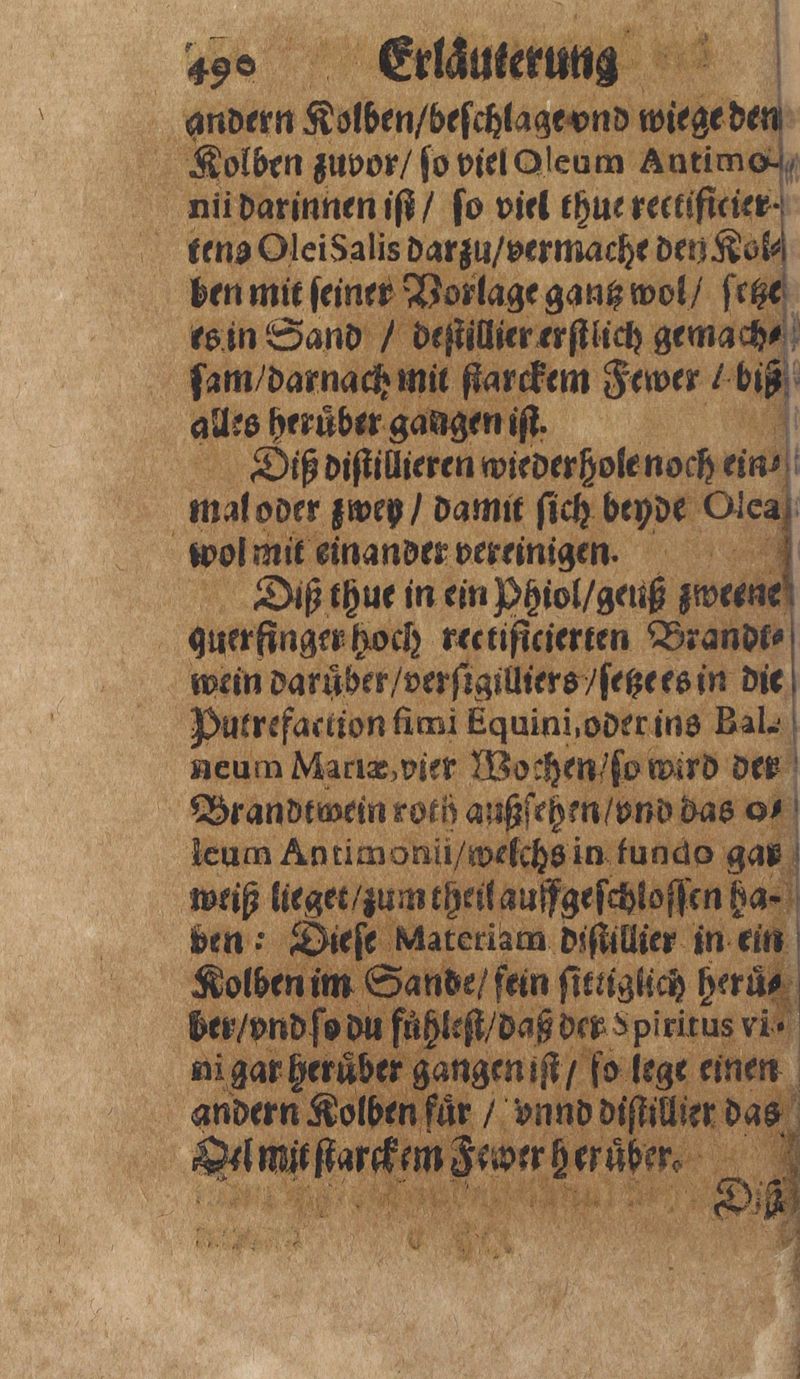 490 Erläuterung
andern Kolben/beſchlage vnd wiege den
Kolben zuvor/ ſo viel Oleum Antimo-
nii darinnen iſt / ſo viel thue rectificier-
tens Olei Salis darzu/vermache den Kol-
ben mit ſeiner Vorlage gantz wol/ ſetze
es in Sand / deſtillier erſtlich gemach-
ſam/darnach mit ſtarckem Fewer / biß
alles herüber gangen iſt.
Diß diſtillieren wiederhole noch ein-
mal oder zwey / damit ſich beyde Olea
wol mit einander vereinigen.
Diß thue in ein Phiol/geuß zweene
querfinger hoch rectificierten Brandt-
wein darüber/verſigilliers/ſetze es in die
Putrefaction fimi Equini, oder ins Bal-
neum Mariæ, vier Wochen/ſo wird der
Brandtwein roth außſehen/vnd das o-
leum Antimonii/welchs in fundo gar
weiß lieget/zum theil auffgeſchloſſen ha-
ben: Dieſe Materiam diſtillier in ein
Kolben im Sande/ fein ſittiglich herü-
ber/vnd ſo du fühleſt/daß der Spiritus vi-
ni gar herüber gangen iſt / ſo lege einen
andern Kolben für / vnnd diſtillier das
Oel mit ſtarckem Fewer herüber.
Diß